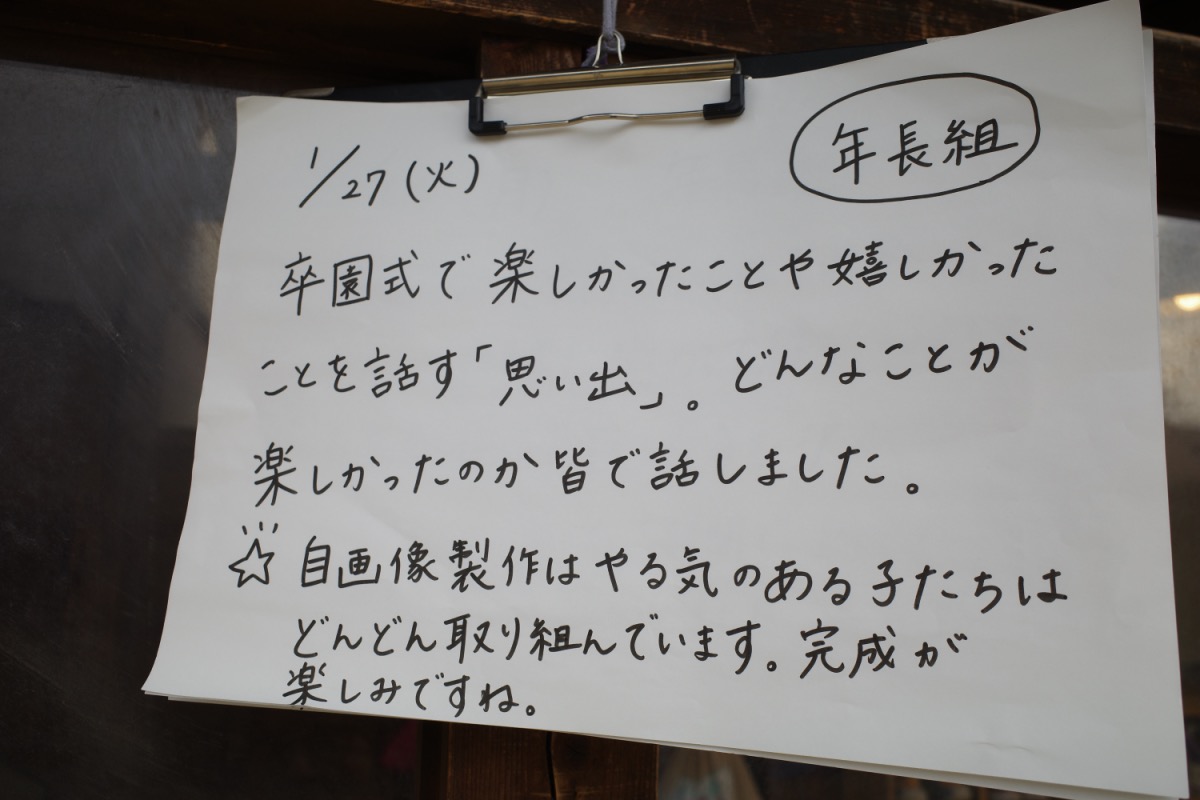 1/27(火)
年長組
卒園式で楽しかったことや嬉しかった
ことを話す「思い出」。どんなことが
楽しかったのか皆で話しました。
☆自画像製作はやる気のある子たちは
どんどん取り組んでいます。完成が
楽しみですね。